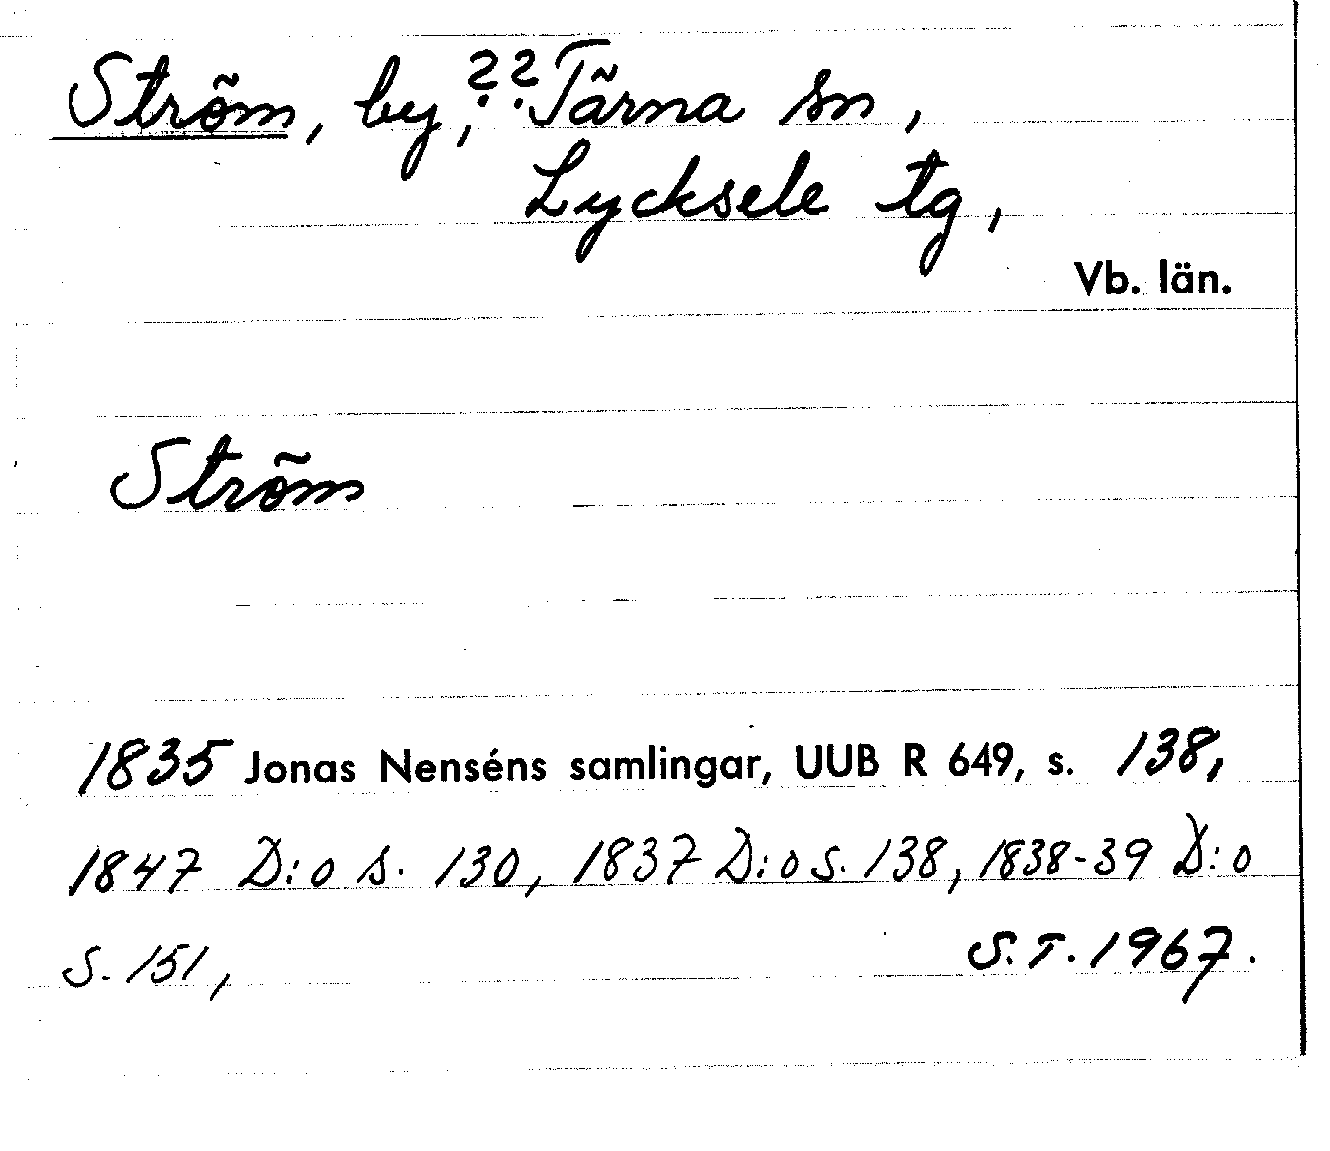 Ström, by, ?? Tärna sn,
Lycksele tg,
Vb. län.
Ström
1835 Jonas Nenséns samlingar, UUB R 649, s. 138,
1847 D:o s. 130, 1837 D:o s. 138, 1838-39 D:o
s. 151,
S.T. 1967.